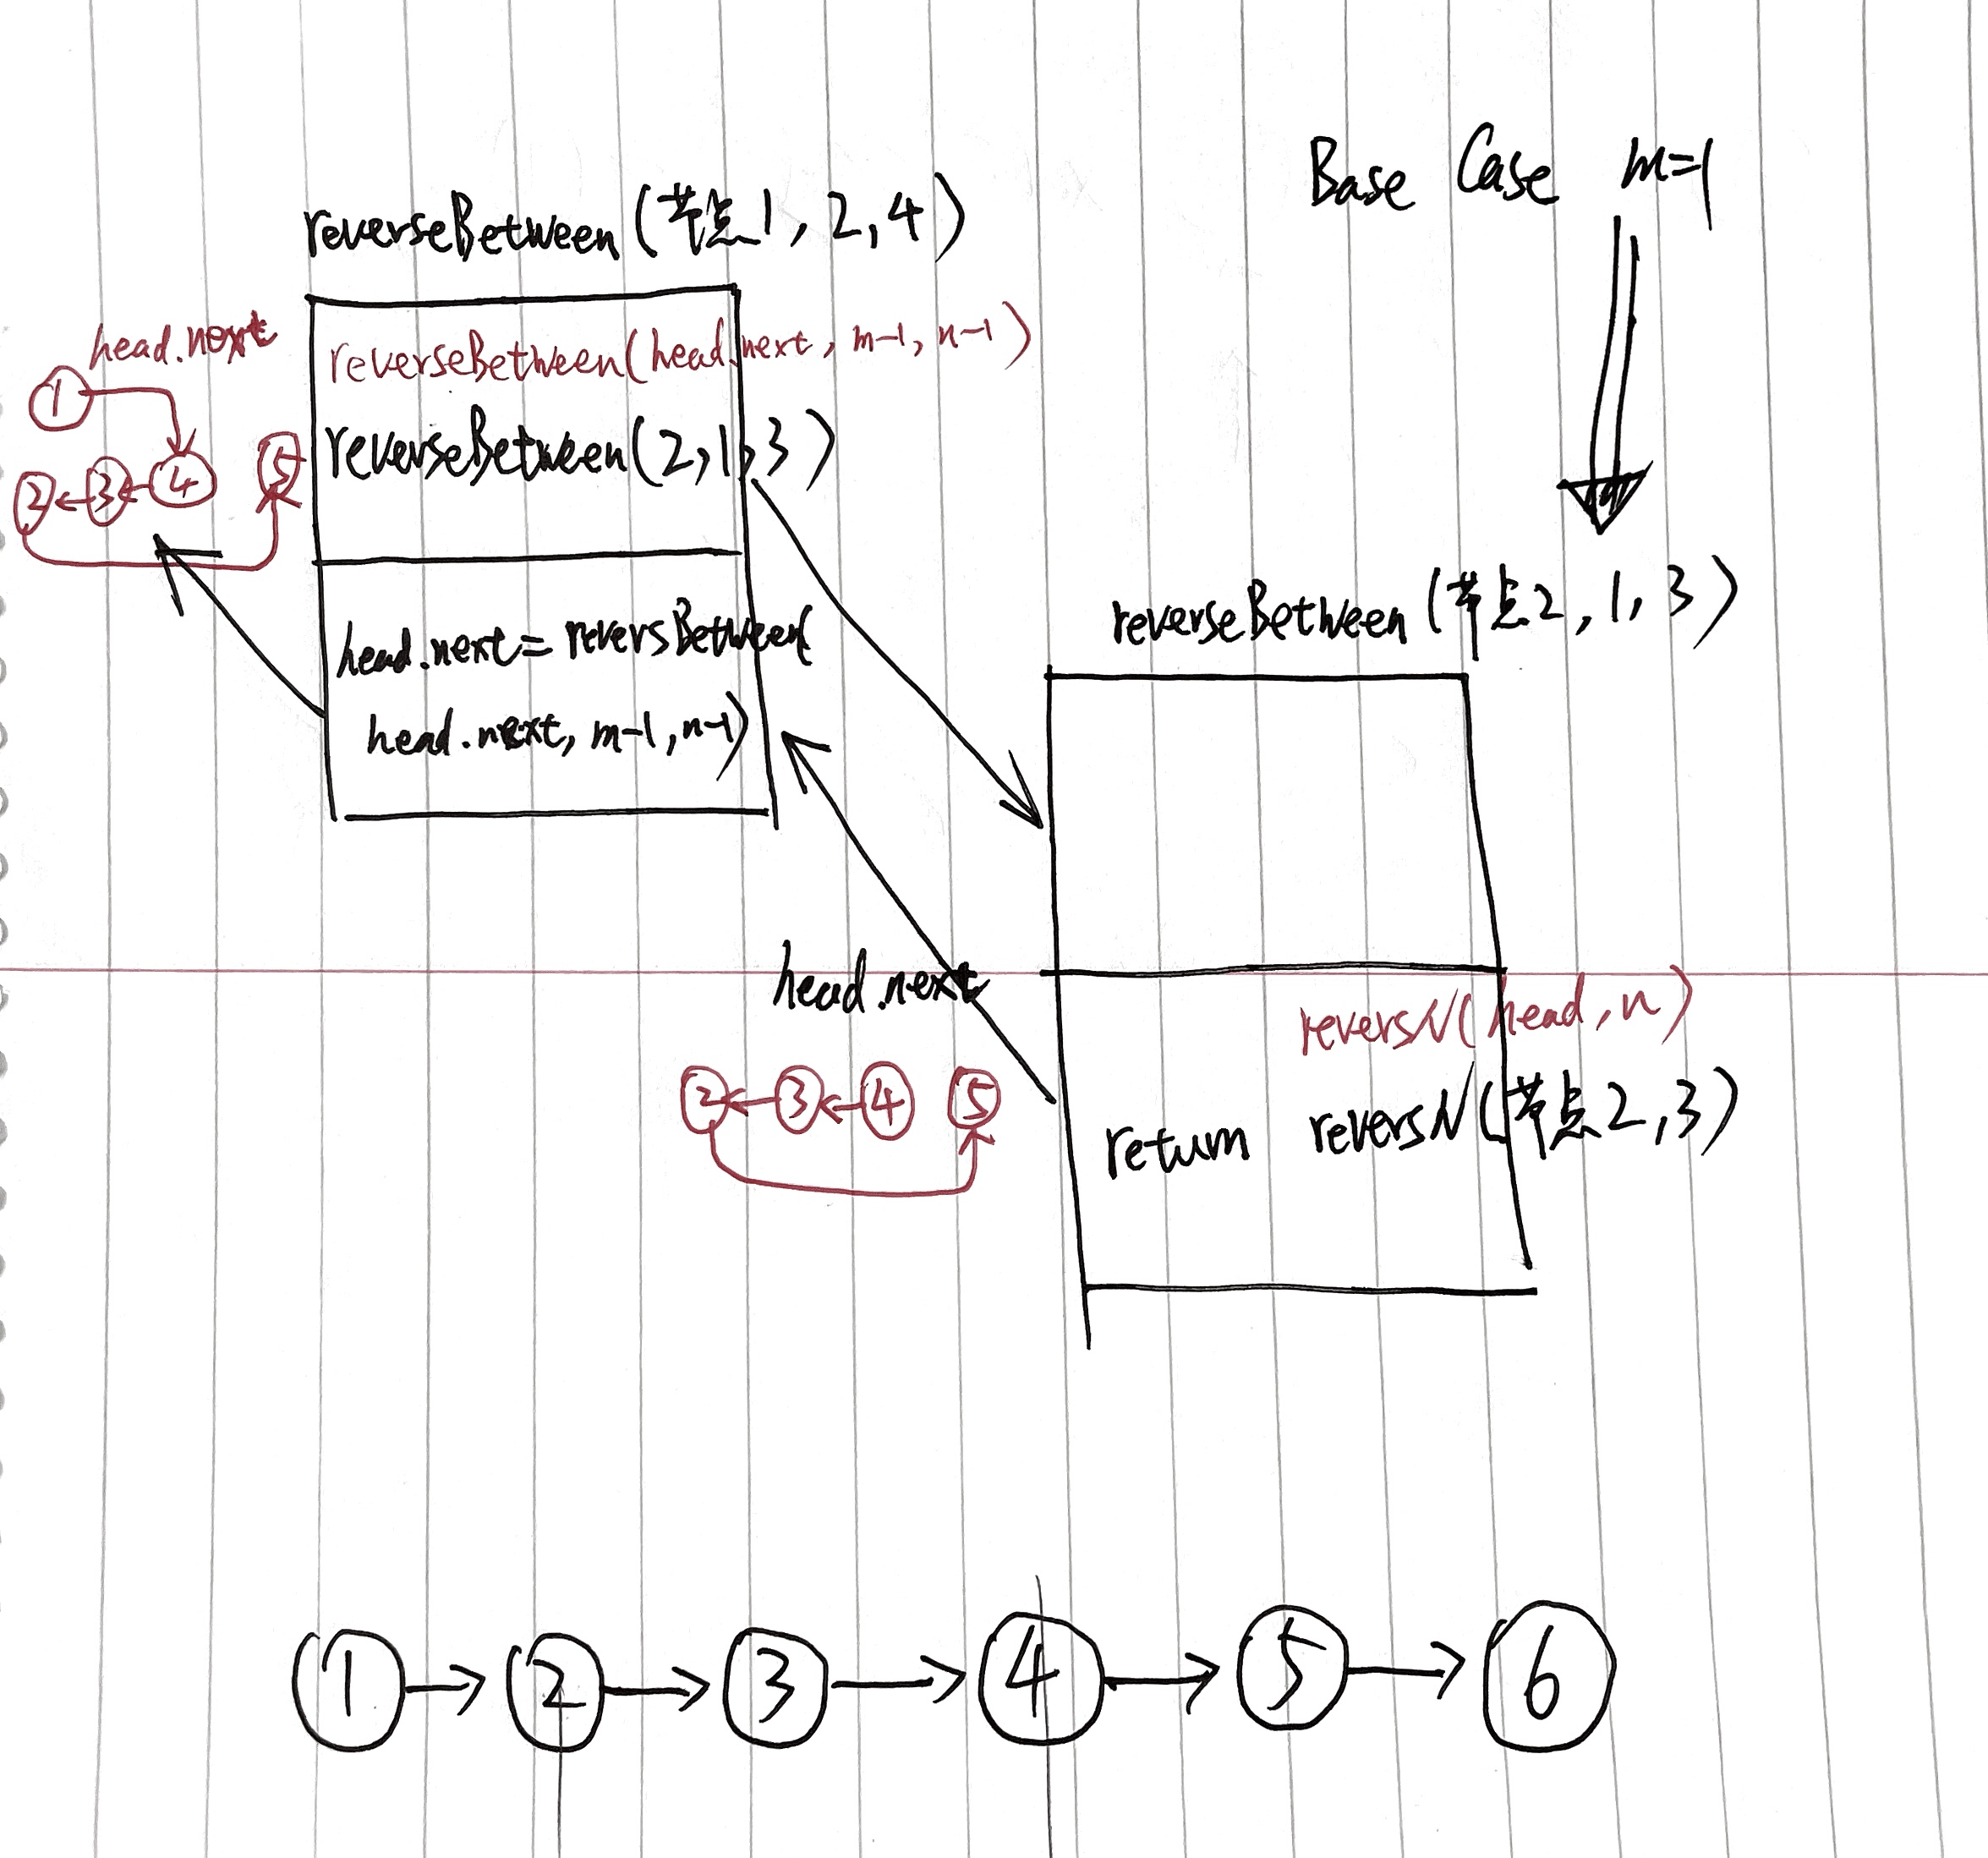 Base Case m=1
reverseBetween(节点1, 2, 4)
head.next
reverseBetween(head.next, m-1, n-1)
1
reverseBetween(2, 1, 3)
2 ← 3 ← 4 5
head.next = reversBetween(
head.next, m-1, n-1)
reverseBetween(节点2, 1, 3)
head.next
reversN(head, n)
2 ← 3 ← 4 5
return reversN(节点2, 3)
1 → 2 → 3 → 4 → 5 → 6